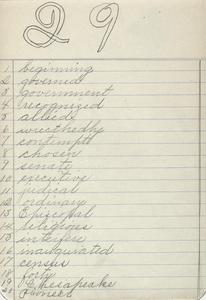 29
1 beginning
2 governed
3 government
4 recognized
5 allieds
6 wretchedly
7 contempt
8 chosen
9 senate
10 executive
11 judical
12 ordinary
13 Episcopal
14 religious
15 interfere
16 inaugurated
17 census
18 forty
19 Chesapeake
20 Pioneer